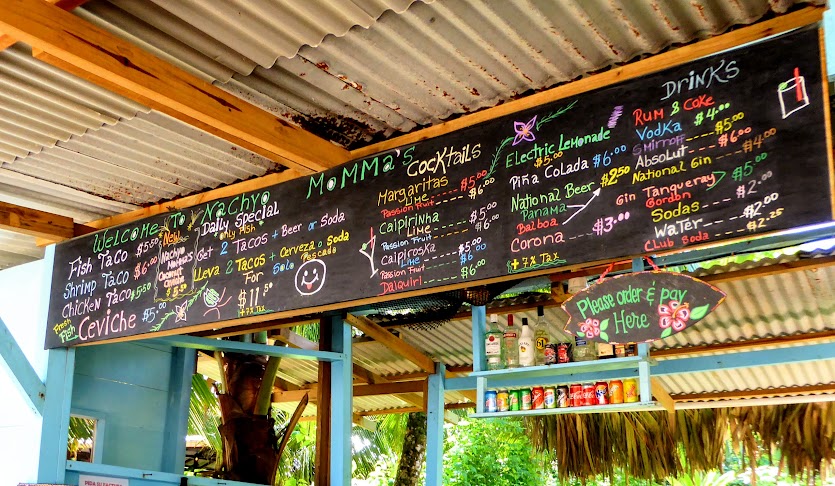 Welcome To Nachyo MoMMa's Cocktails
Fish Taco $5.50
Shrimp Taco $6.00
Chicken Taco $5.50
Fresh Fish Ceviche $5.00
New
Nachyo
Momma's
Coconut
Daily Special
only Fish
Get 2 Tacos + Beer or Soda
Lleva 2 Tacos + Cerveza o Soda
Solo Pescado
For
$11.50
+7% Tax
Margaritas
Lime $5.00
Passion Fruit $6.00
Caipirinha
Lime $5.00
Passion Fruit $6.00
Caipiroska $5.00
Passion Fruit $6.00
Daiquiri $6.00
Electric Lemonade
$5.00
Piña Colada $6.00
National Beer $2.50
Panama
Balboa
Corona $3.00
+7% Tax
Drinks
Rum & Coke $4.00
Vodka
Smirnoff $5.00
Absolut $6.00
National Gin $4.00
Gin Tangueray $5.00
Gordon
Sodas $2.00
Water $2.00
Club Soda $2.25
Please order & pay
Here